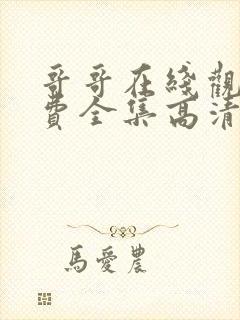 哥哥在綫觀
費全集高清
馬愛農